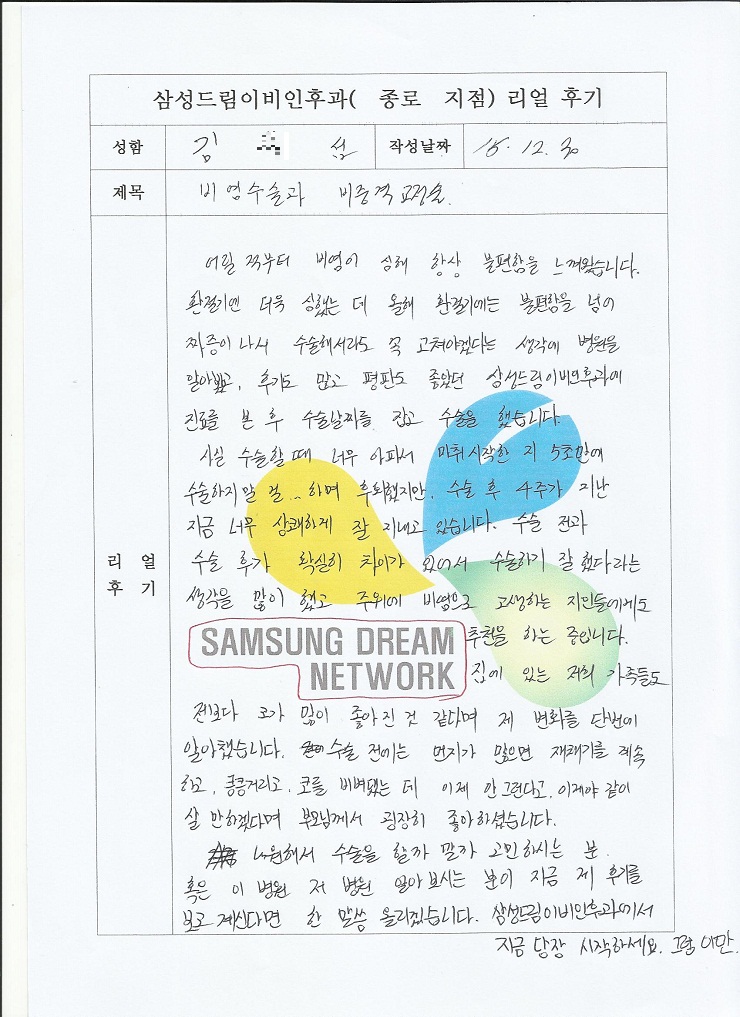 삼성드림이비인후과( 종로 지점) 리얼 후기
성함 김 섭 작성날짜 15. 12. 30
제목 비염수술과 비중격교정술.
리얼 후기
어릴 적부터 비염이 심해 항상 불편함을 느껴왔습니다.
환절기엔 더욱 심했는 데 올해 환절기에는 불편함을 넘어
짜증이 나서 수술해서라도 꼭 고쳐야겠다는 생각에 병원을
알아봤고, 후기도 많고 평판도 좋았던 삼성드림이비인후과에
진료를 본 후 수술날짜를 잡고 수술을 했습니다.
사실 수술할 때 너무 아파서 마취시작한 지 5초만에
수술하지 말 걸... 하며 후회했지만, 수술 후 4주가 지난
지금 너무 상쾌하게 잘 지내고 있습니다. 수술 전과
수술 후가 확실히 차이가 있어서 수술하기 잘 했다라는
생각을 많이 했고 주위에 비염으로 고생하는 지인들에게도
추천을 하는 중입니다.
SAMSUNG DREAM
NETWORK
집에 있는 저희 가족들도
전보다 코가 많이 좋아진 것 같다며 제 변화를 단번에
알아챘습니다. 수술 전에는 먼지가 많으면 재채기를 계속
하고, 킁킁거리고, 코를 비벼댔는 데 이제 안 그런다고, 이제야 같이
살 만하겠다며 부모님께서 굉장히 좋아하셨습니다.
해서 수술을 할까 말까 고민하시는 분
혹은 이 병원 저 병원 알아보시는 분이 지금 제 후기를
보고 계신다면 한 말씀 올리겠습니다. 삼성드림이비인후과에서
지금 당장 시작하세요. 그럼 이만.